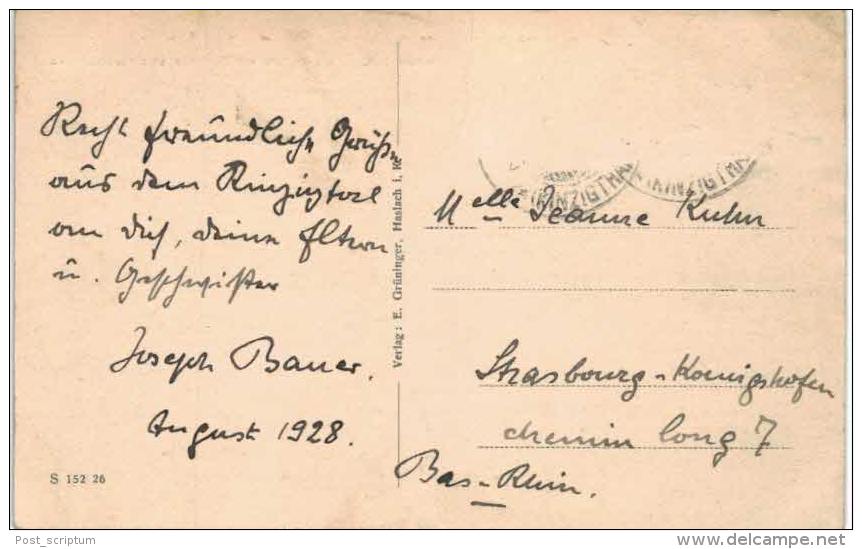 Recht freundliche Grüße
aus dem Kinzigtal
an dich, deine Eltern
u. Geschwister
Joseph Bauer.
August 1928.
S 152 26
Verlag: E. Grüninger, Haslach i. K.
Melle Jeanne Kuhn
Strasbourg-Koenigshofen
chemin long 7
Bas-Rhin.
Post_scriptum
www.delcampe.net